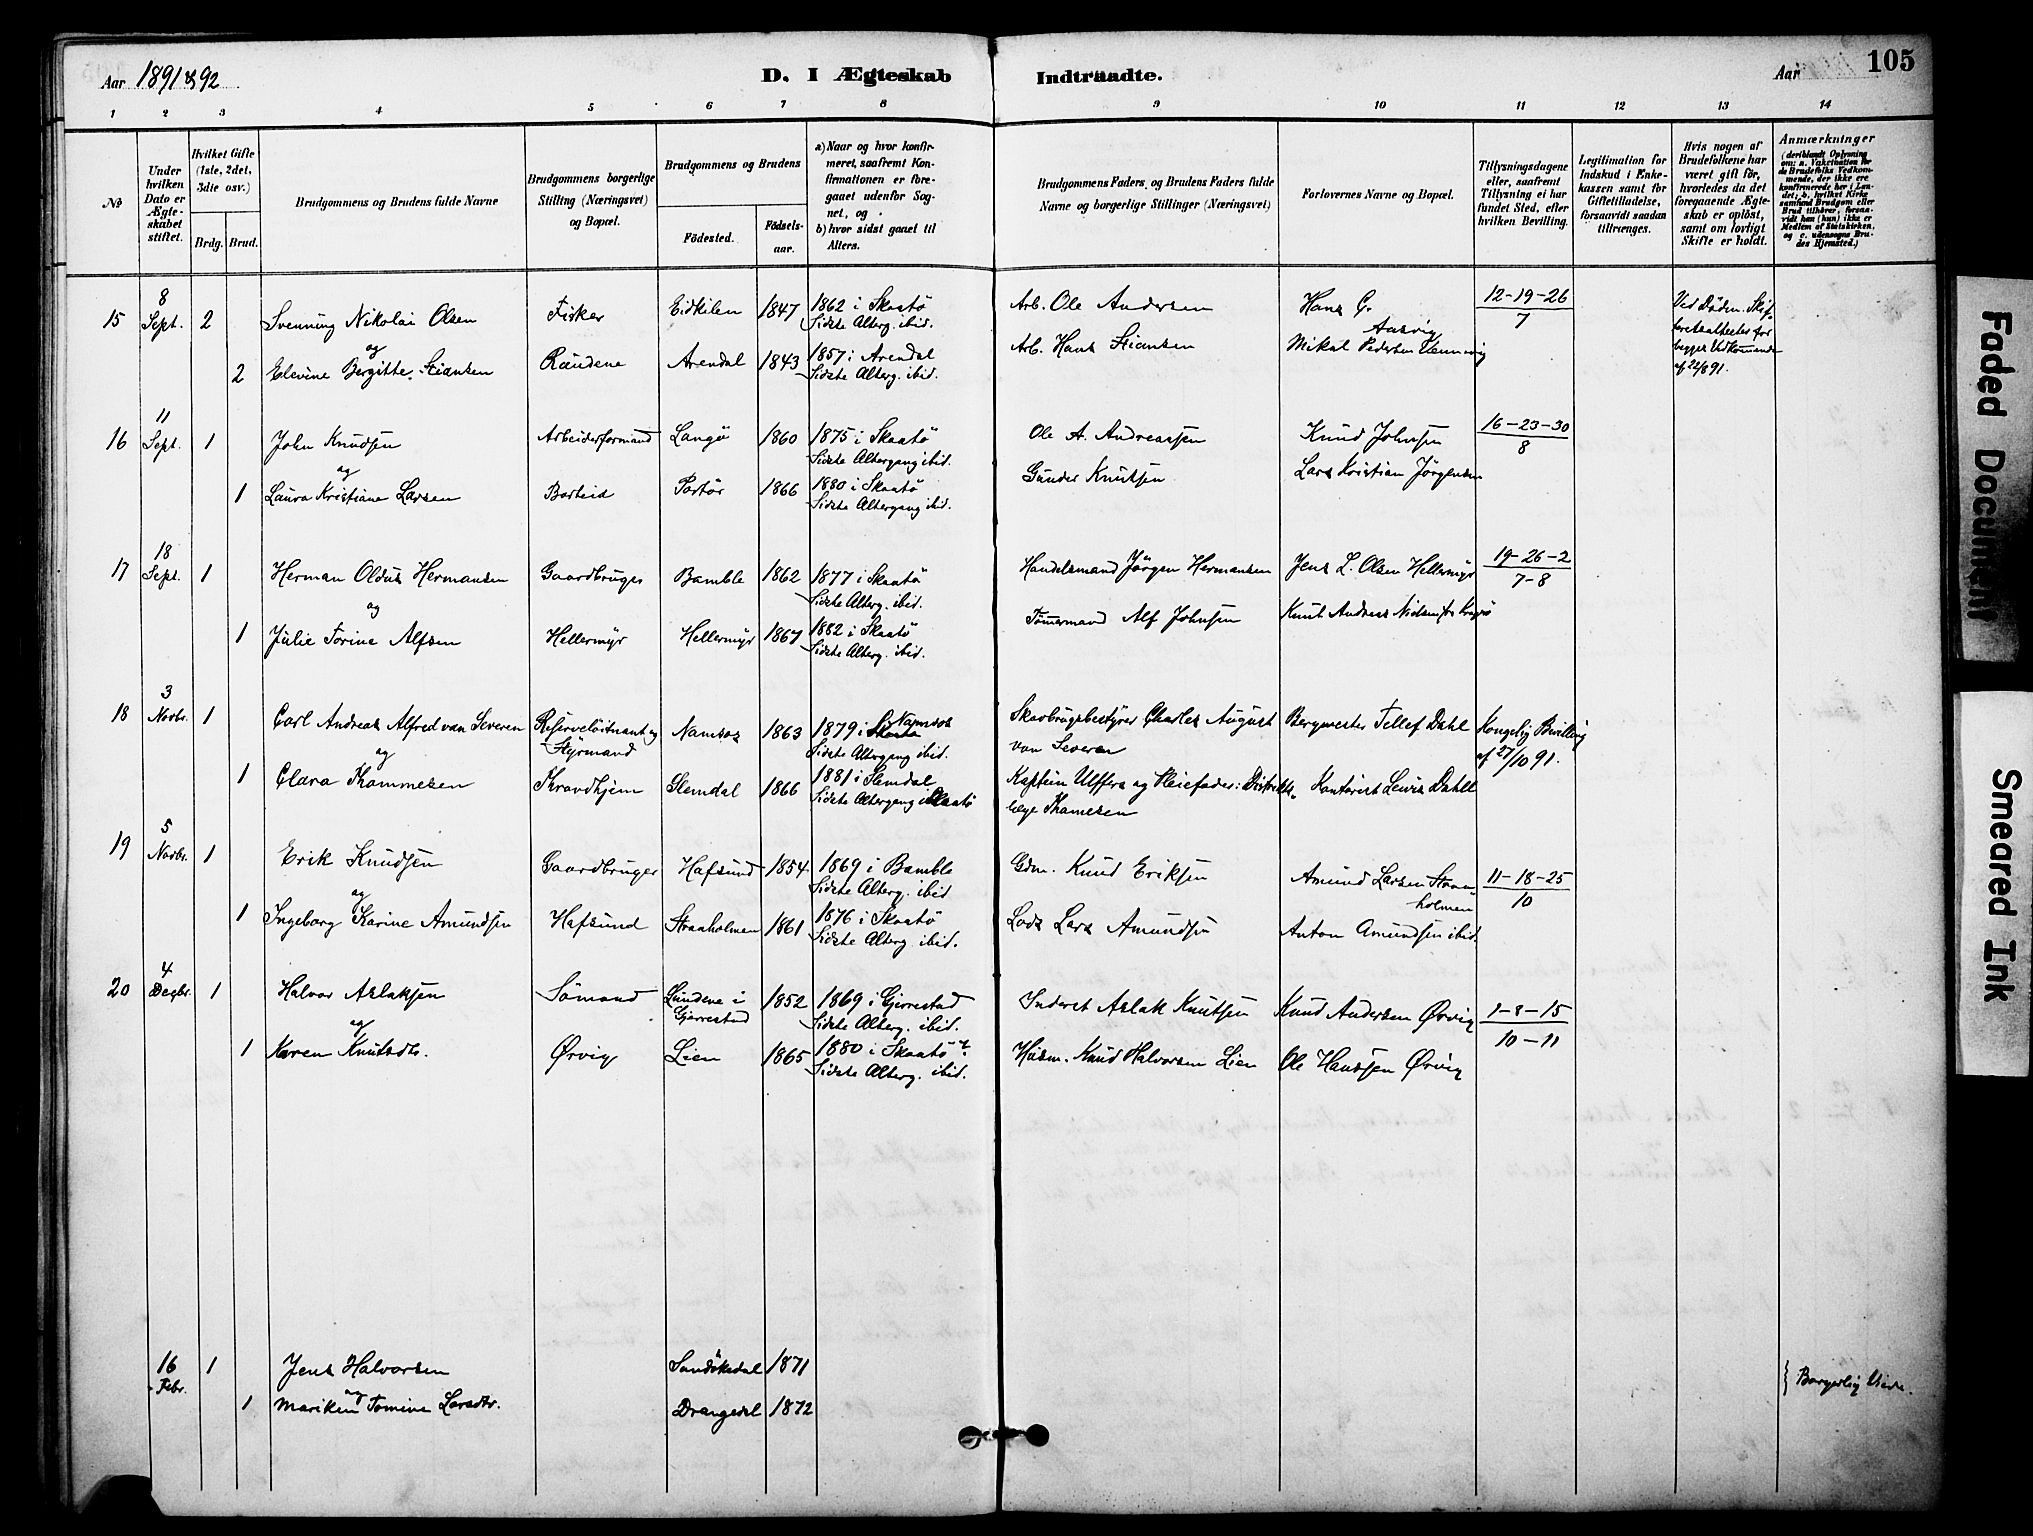 Aar 1891 & 92
D. I Ægteskab Indtraadte.
Aar
105
1 2 3 4 5 6 7 8 9 10 11 12 13 14
No
Under hvilken Dato er Ægteskabet stiftet.
Hvilket Gifte (1ste, 2det, 3die osv.)
Brdg. Brud.
Brudgommens og Brudens fulde Navne
Brudgommens borgerlige Stilling (Næringsvei) og Bopæl.
Brudgommens og Brudens
Fødested.
Fødselsaar.
a) Naar og hvor konfirmeret, saafremt Konfirmationen er foregaaet udenfor Sognet, og
b) hvor sidst gaaet til Alters.
Brudgommens Faders og Brudens Faders fulde Navne og borgerlige Stillinger (Næringsvei)
Forlovernes Navne og Bopæl.
Tillysningsdagene eller, saafremt Tillysning ei har fundet Sted, efter hvilken Bevilling.
Legitimation for Indskud i Enkekassen samt for Giftetilladelse, forsaavidt saadan tiltrænges.
Hvis nogen af Brudefolkene har været gift før, hvorledes da det foregaaende Ægteskab er opløst, samt om lovligt Skifte er holdt.
Anmærkninger
(deriblandt Oplysning om: a. Vakcination for de Brudefolks Vedkommende, der ikke ere konfirmerede her i Landet, b. hvilket Kirkesamfund Brudgom eller Brud tilhører, forsaavidt han (hun) ikke er Medlem af Statskirken, og c. udensogns Brudes Hjemsted.)
15 8 Sept. 2 Svenning Nikolai Olsen Fisker Eidkilen 1847 1862 i Skaatö Sidste Alterg. ibid. Arb. Ole Andersen Hans G. Aasvig 12-19-26 7 Ved Döden.
og
2 Elevine Bergitte Stiansen Raudene Arendal 1843 1857 i Arendal Sidste Alterg. ibid. Arb. Hans Stiansen Mikal Pedersen
16 11 Sept. 1 John Knudsen Arbeiderformand Langö 1860 1875 i Skaatö Sidste Altergang ibid. Ole A. Andreassen Knud Johnsen 16-23-30 8
og
1 Laura Kristiane Larsen Barteid Portör 1866 1880 i Skaatö Sidste Altergang ibid. Gunder Knutsen Lars Kristian Jörgensen
17 18 Sept. 1 Herman Oldus Hermansen Gaardbruger Bamble 1862 1877 i Skaatö Sidste Alterg. ibid. Handelsmand Jörgen Hermansen Jens L. Olsen Hellermyr 19-26-2 7-8
og
1 Julie Torine Alfsen Hellermyr Hellermyr 1867 1882 i Skaatö Sidste Alterg. ibid. Tömmermand Alf Johnsen Knut Andreas Nielsen
18 3 Novbr. 1 Carl Andreas Alfred van Severen Reserveløitnant og Styrmand Namsos 1863 1879 i Namsos Sidste Altergang ibid. Skovbrugsbestyrer Charles August van Severen Bergmester Tellef Dahl Kongelig Bevilling af 27/10 91.
og
1 Clara Thommesen Slemdal 1866 1881 i Slemdal Sidste Altergang i Skaatö Kaptein Ulffers og Pleiefader: Distriktslæge Thomesen Kontorist Lewis Dahll
19 5 Novbr. 1 Erik Knudsen Gaardbruger Hafsund 1854 1869 i Bamble Sidste Alterg. ibid Gdm. Knud Eriksen Amund Larsen Straaholmen 11-18-25 10
og
1 Ingeborg Karine Amundsen Hafsund Straaholmen 1861 1876 i Skaatö Sidste Alterg. ibid. Lods Lars Amundsen Anton Amundsen ibid.
20 4 Decbr. 1 Halvor Aslaksen Sömand Lundene i Gjerrestad 1852 1869 i Gjerrestad Sidste Alterg. ibid. Inderst Aslak Knutsen Knud Andersen Ørvig 1-8-15 10-11
og
1 Karen Knutsdtr. Ørvig Lien 1865 1880 i Skaatö Sidste Alterg. ibid. Husm. Knud Halvorsen Lien Ole Hanssen Ørvig
16 Febr. 1 Jens Halvorsen Sandökedal 1871 Borgerlig Viede.
og
1 Mariken Tomine Larsdtr. Drangedal 1872
Faded Document
Smeared Ink